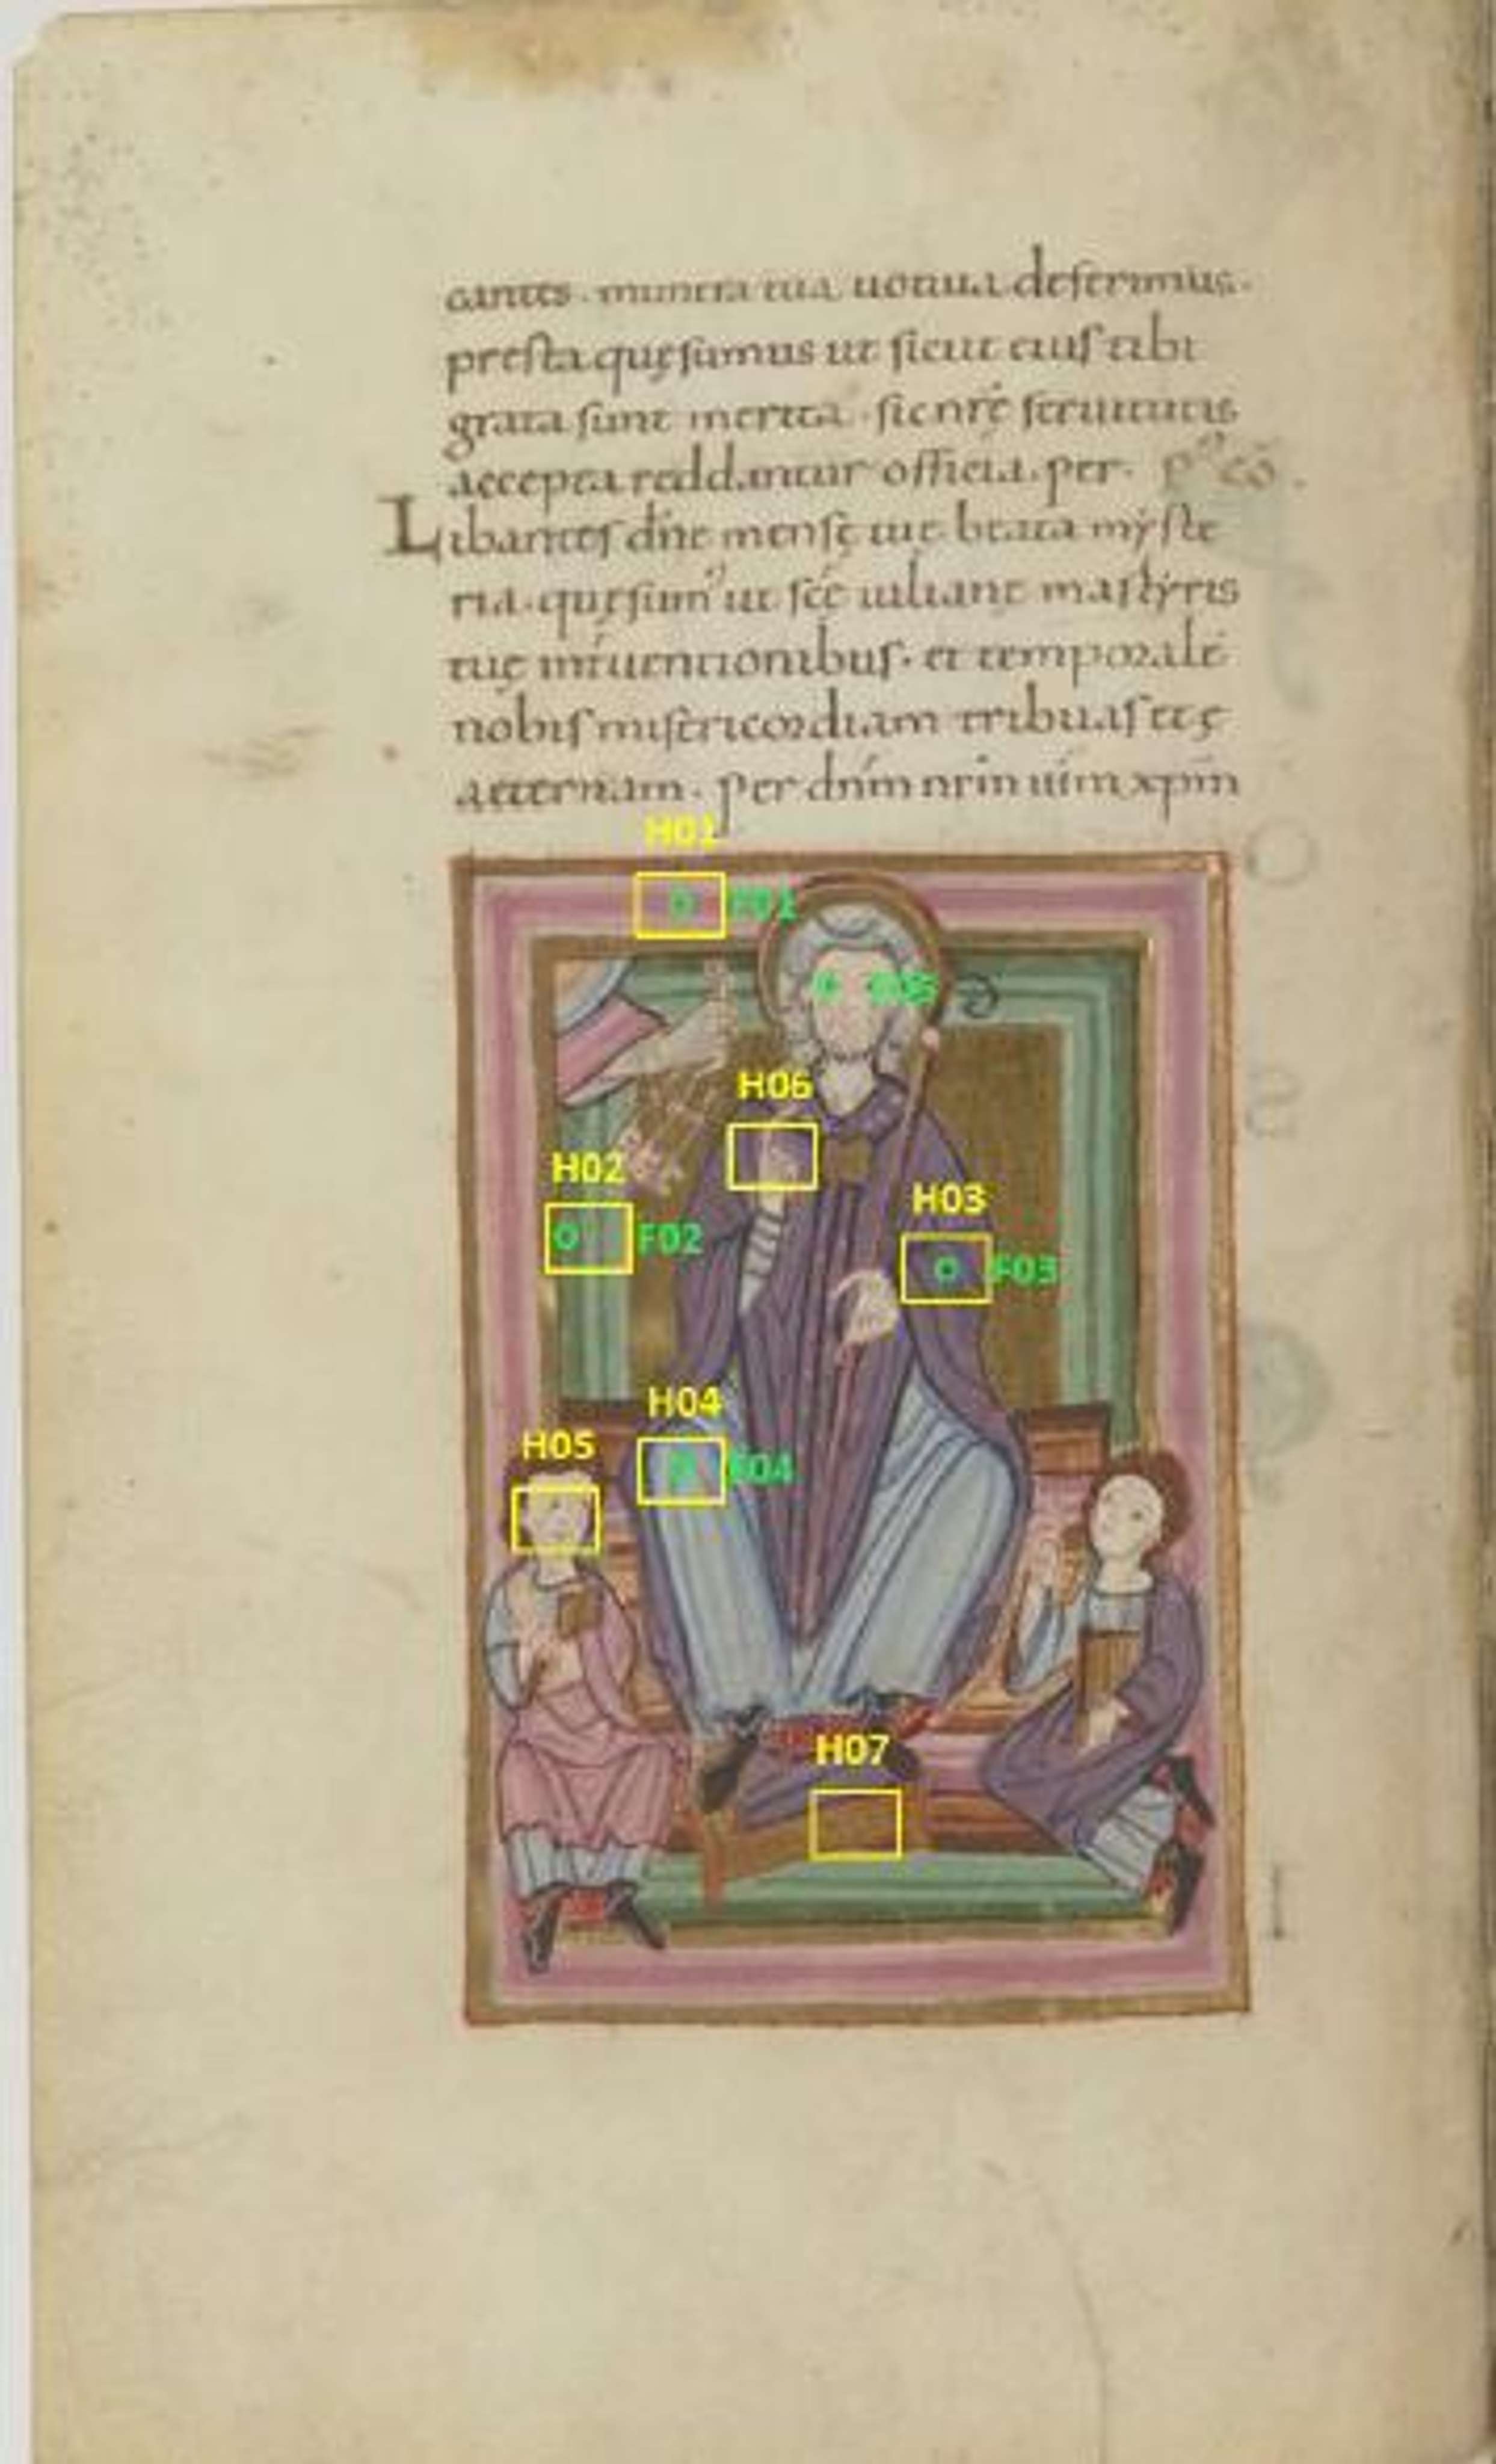 cantes . munera tua uotiua deferimus.
presta quęsumus ut sicut eius tibi
grata sunt merita . sic nrę seruitutis
accepta reddantur officia. per. pº cō.
Libantes dn̄e mensę tuę beata myste
ria. quęsumꝰ ut scē iulianę martyris
tuę int̄uentionibus. et temporalē
nobis misericordiam tribuas et ę
aeternam. per dn̄m nrm iħm xp̄m
H01
F01
F05
H06
H02
F02
H03
F03
H04
F04
H05
H07